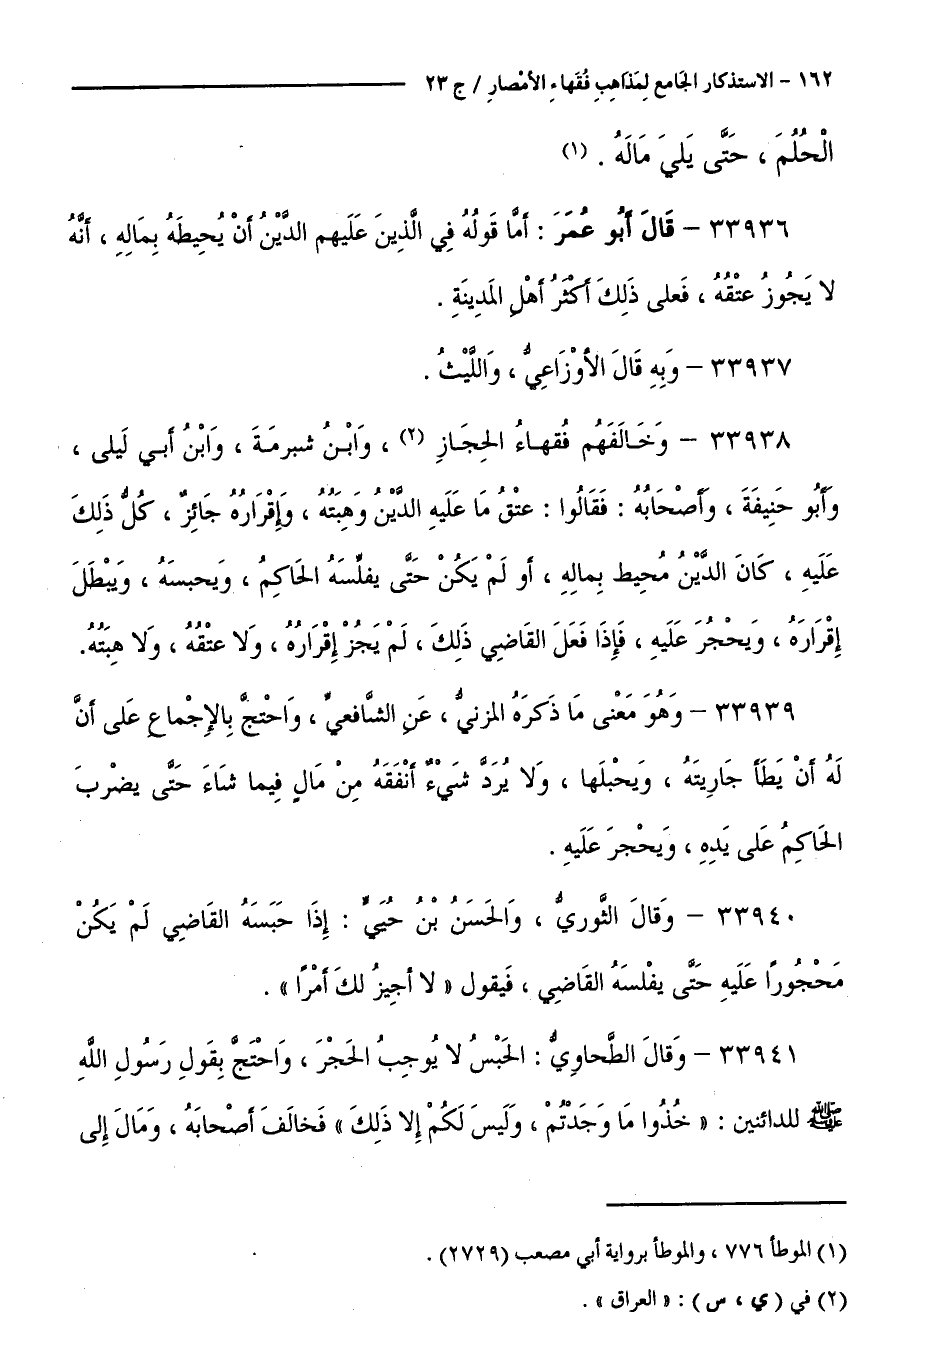 ١٦٢ - الاستذكار الجَامع لِمَذاهِبِ فُقَهاءِ الأمْصارِ / ج ٢٣
الْحُلُمَ ، حَتَّى يَلِيَ مَالَهُ . (١)
٣٣٩٣٦ - قَالَ أَبُو عُمَرَ : أمَّا قَولُهُ فِي الَّذِينَ عَلَيهم الدَّيْنُ أنْ يُحِيطَهُ بِمَالِهِ ، أنَّهُ
لا يَجُوزُ عتْقُهُ ، فَعلى ذَلِكَ أكْثَرُ أهْلِ المَدِينَةِ .
٣٣٩٣٧ - وَبِهِ قَالَ الأوْزَاعِيُّ ، وَاللَّيْثُ .
٣٣٩٣٨ - وَخَالَفَهُم فُقهاءُ الحِجَازِ (٢) ، وَابْنُ شبرمَةَ ، وَابْنُ أبي لَيلى ،
وَأَبُو حَنِيفَةَ ، وَأَصْحَابُهُ : فَقَالُوا : عتْقُ مَا عَلَيهِ الدَّيْنُ وَهِبَتُه ، وَإِقْرَارُهُ جَائِزٌ ، كُلُّ ذَلِكَ
عَلَيهِ ، كَانَ الدَّيْنُ مُحيط بِمالِهِ ، أو لَمْ يَكُنْ حَتَّى يفلِّسَهُ الحَاكِمُ ، وَيحبسَهُ ، وَيَبْطَلَ
إِقْرَارَهُ ، وَيَحْجُرَ عَلَيهِ ، فَإِذَا فَعلَ القَاضِي ذَلِكَ ، لَمْ يَجُزْ إِقْرَارُهُ ، وَلا عتْقُهُ ، وَلا هِبَتُهُ.
٣٣٩٣٩ - وَهُوَ مَعْنى مَا ذَكرَهُ المزنيُّ ، عَنِ الشَّافعيِّ ، وَاحْتجَّ بِالإِجْماعِ عَلى أنَّ
لَهُ أنْ يَطَأَ جَارِيتَهُ ، وَيَحْبلَها ، وَلا يُرَدَّ شَيْءٌ أنْفَقَهُ مِنْ مَالٍ فِيما شَاءَ حَتَّى يضْربَ
الحَاكِمُ عَلى يَدِهِ ، وَيَحْجرَ عَلَيهِ .
٣٣٩٤٠ - وَقالَ الثَّوريُّ ، وَالحَسَنُ بْنُ حُيَيٍّ : إِذَا حَبَسَهُ القَاضِي لَمْ يَكُنْ
مَحْجُورًا عَلَيهِ حَتَّى يفْلسَهُ القَاضِي ، فَيقول « لا أجيزُ لكَ أمْرًا » .
٣٣٩٤١ - وَقالَ الطَّحاوِيُّ : الحَبْسُ لا يُوجِبُ الحَجْرَ ، وَاحْتجَّ بِقَولِ رَسُولِ اللَّهِ
ﷺ للدائنين : « خُذُوا مَا وَجَدْتُمْ ، وَلَيسَ لَكُمْ إِلا ذَلِكَ » فَخالَفَ أصْحابَهُ ، وَمَالَ إِلى
(١) الموطأ ٧٧٦ ، والموطأ برواية أبي مصعب (٢٧٢٩) .
(٢) في ( ي ، س ) : « العراق » .